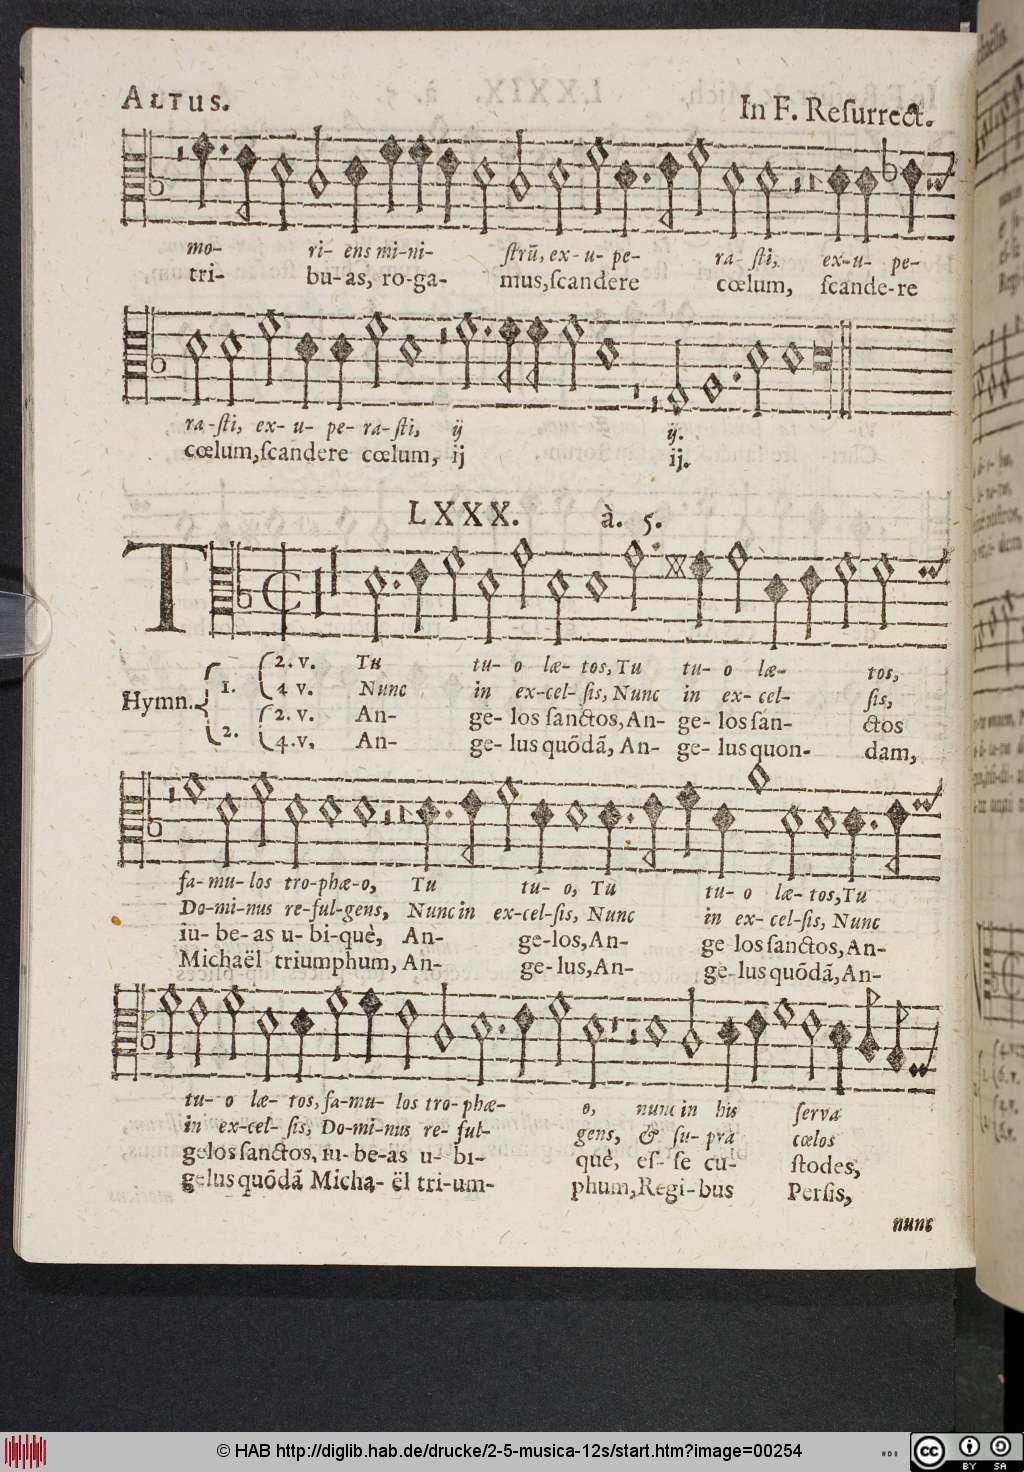 ALTUS.
In F. Reſurrect.
mo- ri- ens mi-ni- ſtrū, ex-u- pe- ra- ſti, ex-u- pe-
tri- bu-as, ro-ga- mus,ſcandere cœlum, ſcande-re
ra-ſti, ex- u- pe- ra-ſti, ij ij.
cœlum,ſcandere cœlum, ij ij.
LXXX. à. 5.
T
Hymn.
1. 2. v. Tu tu- o læ- tos,Tu tu- o læ- tos,
4 v. Nunc in ex-cel- ſis, Nunc in ex- cel- ſis,
2. 2. v. An- ge- los ſanctos,An- ge- los ſan- ctos
4. v. An- ge- lus quōdā, An- ge- lus quon- dam,
fa-mu-los tro-phæ-o, Tu tu- o, Tu tu- o læ- tos,Tu
Do-mi-nus re-ful-gens, Nunc in ex-cel-ſis, Nunc in ex- cel-ſis, Nunc
iu- be- as u- bi-què, An- ge-los,An- ge los ſanctos,An-
Michaël triumphum, An- ge- lus,An- ge-lus quōdā,An-
tu- o læ- tos,fa-mu- los tro-phæ- o, nunc in his ſerva
in ex-cel- ſis, Do-mi-nus re- ful- gens, & ſu- pra cœlos
gelos ſanctos, iu-be-as u- bi- què, eſ-ſe cu- ſtodes,
gelus quōdā Micha-ël tri-um- phum,Regi-bus Perſis,
nunc
© HAB http://diglib.hab.de/drucke/2-5-musica-12s/start.htm?image=00254
cc BY SA